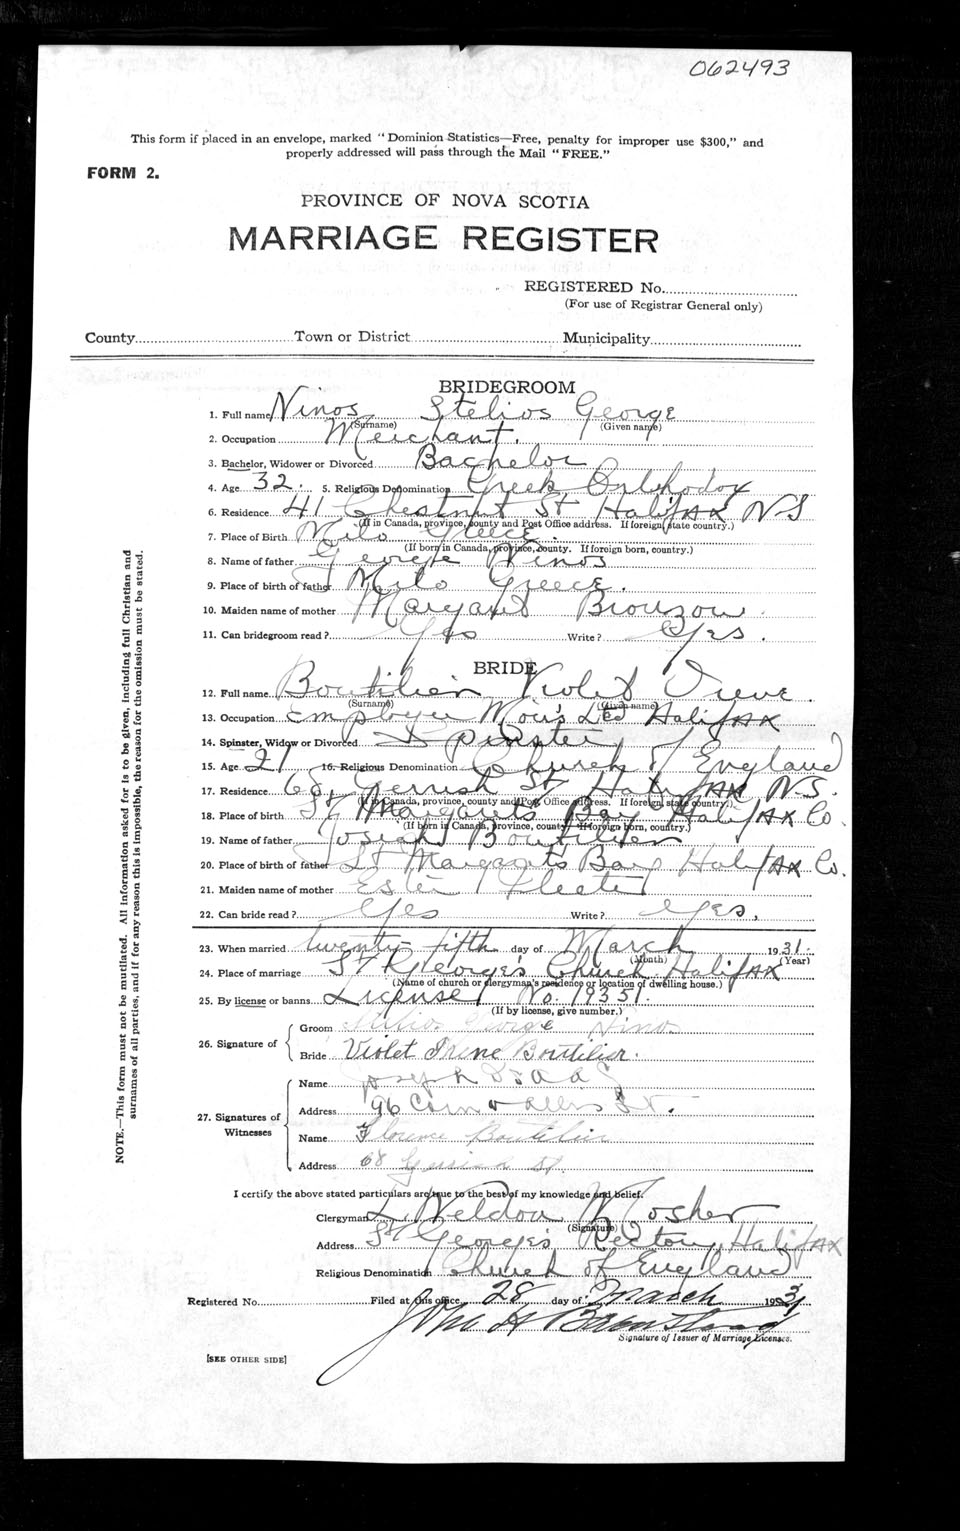 062493
This form if placed in an envelope, marked "Dominion Statistics—Free, penalty for improper use $300," and
properly addressed will pass through the Mail "FREE."
FORM 2.
PROVINCE OF NOVA SCOTIA
MARRIAGE REGISTER
REGISTERED No.
(For use of Registrar General only)
County Town or District Municipality
BRIDEGROOM
1. Full name Ninos Stelios George
(Surname) (Given name)
2. Occupation Merchant.
3. Bachelor, Widower or Divorced Bachelor
4. Age 32. 5. Religious Denomination Greek Orthodox
6. Residence 41 Chestnut St Halifax NS
(If in Canada, province, county and Post Office address. If foreign, state country.)
7. Place of Birth Milo Greece.
(If born in Canada, province, county. If foreign born, country.)
8. Name of father George Ninos
9. Place of birth of father Milo Greece.
10. Maiden name of mother Margaret
11. Can bridegroom read? Yes Write? Yes.
BRIDE
12. Full name Boutilier Violet Irene
(Surname) (Given name)
13. Occupation Employee Moir's Ltd Halifax
14. Spinster, Widow or Divorced Spinster
15. Age 21 16. Religious Denomination Church of England
17. Residence 68 Gerrish St Halifax N.S.
(If in Canada, province, county and Post Office address. If foreign, state country.)
18. Place of birth St Margarets Bay Halifax Co.
(If born in Canada, province, county. If foreign born, country.)
19. Name of father Josiah Boutilier
20. Place of birth of father St Margarets Bay Halifax Co.
21. Maiden name of mother Ester
22. Can bride read? Yes Write? Yes.
23. When married twenty-fifth day of March 1931.
(Month) (Year)
24. Place of marriage St George's Church Halifax
(Name of church or clergyman's residence or location of dwelling house.)
25. By license or banns License No. 19351.
(If by license, give number.)
26. Signature of
Groom Stelios George Nino
Bride Violet Irene Boutilier.
27. Signatures of Witnesses
Name Joseph Isaac
Address 96 Cornwallis St.
Name Florence Boutilier
Address 68 St.
I certify the above stated particulars are true to the best of my knowledge and belief.
Clergyman Weldon Mosher
(Signature)
Address St George's Rectory, Halifax
Religious Denomination Church of England
Registered No. Filed at this office 28 day of March 1931
John H
Signature of Issuer of Marriage Licenses.
[SEE OTHER SIDE]
NOTE.—This form must not be mutilated. All information asked for is to be given, including full Christian and
surnames of all parties, and if for any reason this is impossible, the reason for the omission must be stated.